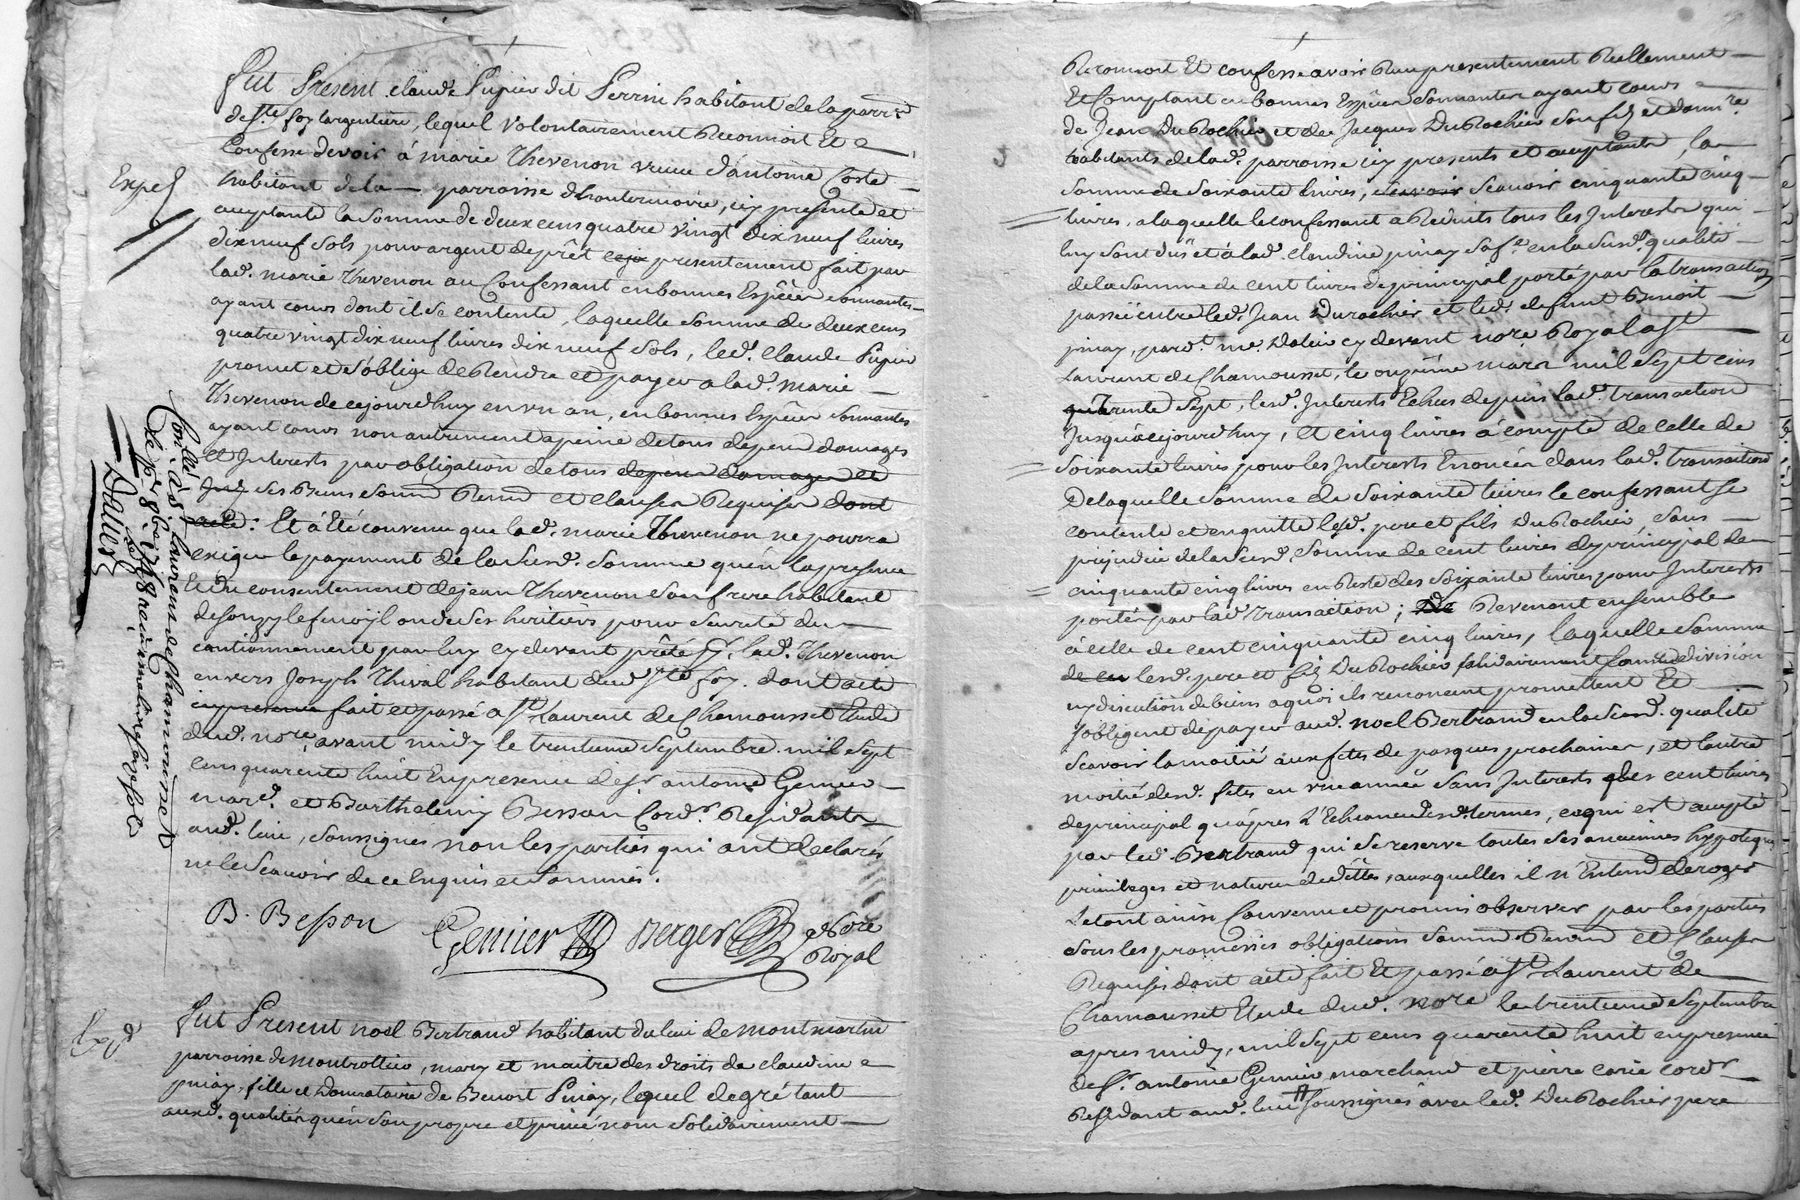 Fut Present claude Pupier dit Perrin habitant de la parr.se
de s.te foy largentiere, lequel volontairement Reconnoit Et
Confesse devoir à marie Thevenon veuve d'antoine Coste
habitant de la parroisse d'hauterivoire, icy presente et
acceptante la somme de deux cens quatre vingt dix neuf livres
dix neuf sols pour argent de prêt presentement fait par
lad. marie Thevenon au Confessant en bonnes Espêces sonnantes
ayant cours dont il se contente, laquelle somme de deux cens
quatre vingt dix neuf livres dix neuf sols, led. Claude Pupier
promet et s'oblige de Rendre et payer a lad. marie
Thevenon de cejourdhuy en un an, en bonnes Espêces sonnantes
ayant cours non autrement a peine de tous depens domages
et Interests par obligation de tous depens domages et
Int ses Biens soumis Renon et clauses Requises dont
acte: Et à Eté convenu que lad. marie Thevenon ne pourra
exiger le payement de la susd. somme qu'en la presence
Et du consentement de jean Thevenon son frere habitant
de souzy le ou de ses heritiers pour seureté du
cautionnement par luy cy devant prêté lad. Thevenon
envers Joseph Thival habitant dud. s.te foy. dont acte
fait et passé a s.t Laurent de Chamousset Etude
dud. no.re avant midy le trentieme septembre mil sept
cens quarente huit En presence de s.r antoine Gemier
mar.d et Barthelemy Besson Cord.r Residants
aud. lieu, soussignes non les parties qui ont declarés
ne le scavoir de ce Enquis et sommés.
B. Besson Gemier Berger Nore
Royal
Exped
Con.llé à s.t Laurent de Chamousset
le p.r 8.bre 1748 reçu
Dalier
Exp.d
Fut Present noel Bertrand habitant du lieu de montmartin
parroisse de montrottier, mary et maitre des droits de claudine
pinay, fille et Donnataire de Benoit Pinay, lequel de gré tant
auxd. qualités qu'en son propre et privé nom solidairement
Reconnoit Et confesse avoir Reçu presentement Réellement
Et Comptant en bonnes Espêces sonnantes ayant cours
de Jean DuRochier et de Jacques DuRochier son fils et donn.re
habitants de lad. parroisse icy presents et acceptants, la
somme de soixante livres, scavoir cinquante cinq
livres, a laquelle le confessant a Réduits tous les Interests qui
luy sont dûs et à lad. claudine pinay sa fe. en la susd. qualité
de la somme de cent livres de principal porté par la transaction
passée entre led. Jean Durochier et led. defunt Benoit
pinay, pard.t me. Dalier cy devant nore Royal a s.t
Laurent de Chamousset, le onzième mars mil sept cens
trente sept, lesd. Interests Echus depuis lad. transaction
Jusqu'à cejourdhuy, Et cinq livres à compte de celle de
soixante livres pour les Interests Enoncés dans lad. transaction
De laquelle somme de soixante livres le confessant se
contente et en quitte lesd. pere et fils DuRochier, sans
prejudice de la susd. somme de cent livres de principal de
cinquante cinq livres en Reste des soixante livres pour Interests
portés par lad transaction; Revenant ensemble
à celle de cent cinquante cinq livres, laquelle somme
lesd. pere et fils DuRochier solidairement sans division
ny discution de biens a quoi ils renoncent promettent Et
s'obligent de payer aud. noel Bertrand en la susd. qualité
scavoir la moitié aux fetes de pasques prochaines, et l'autre
moitié esd. fetes en une année sans Interests des cent livres
de principal qu'apres l'Echeance desd. termes, ce qui est accepté
par led. Bertrand qui se reserve toutes ses anciennes hypoteques
privileges et nature de dettes, auxquelles il n'Entend deroger
Letout ainsi Convenu et promis observer par les parties
sous les promesses obligations soumis. Renon et Clauses
Requises dont acte fait Et passé a s.t Laurent de
Chamousset Etude dud. nore le trentieme septembre
apres midy, mil sept cens quarente huit en presence
de s.r antoine Gemier marchand et pierre cord.r
Resid.ant aud. lieu soussignés avec led. DuRochier pere